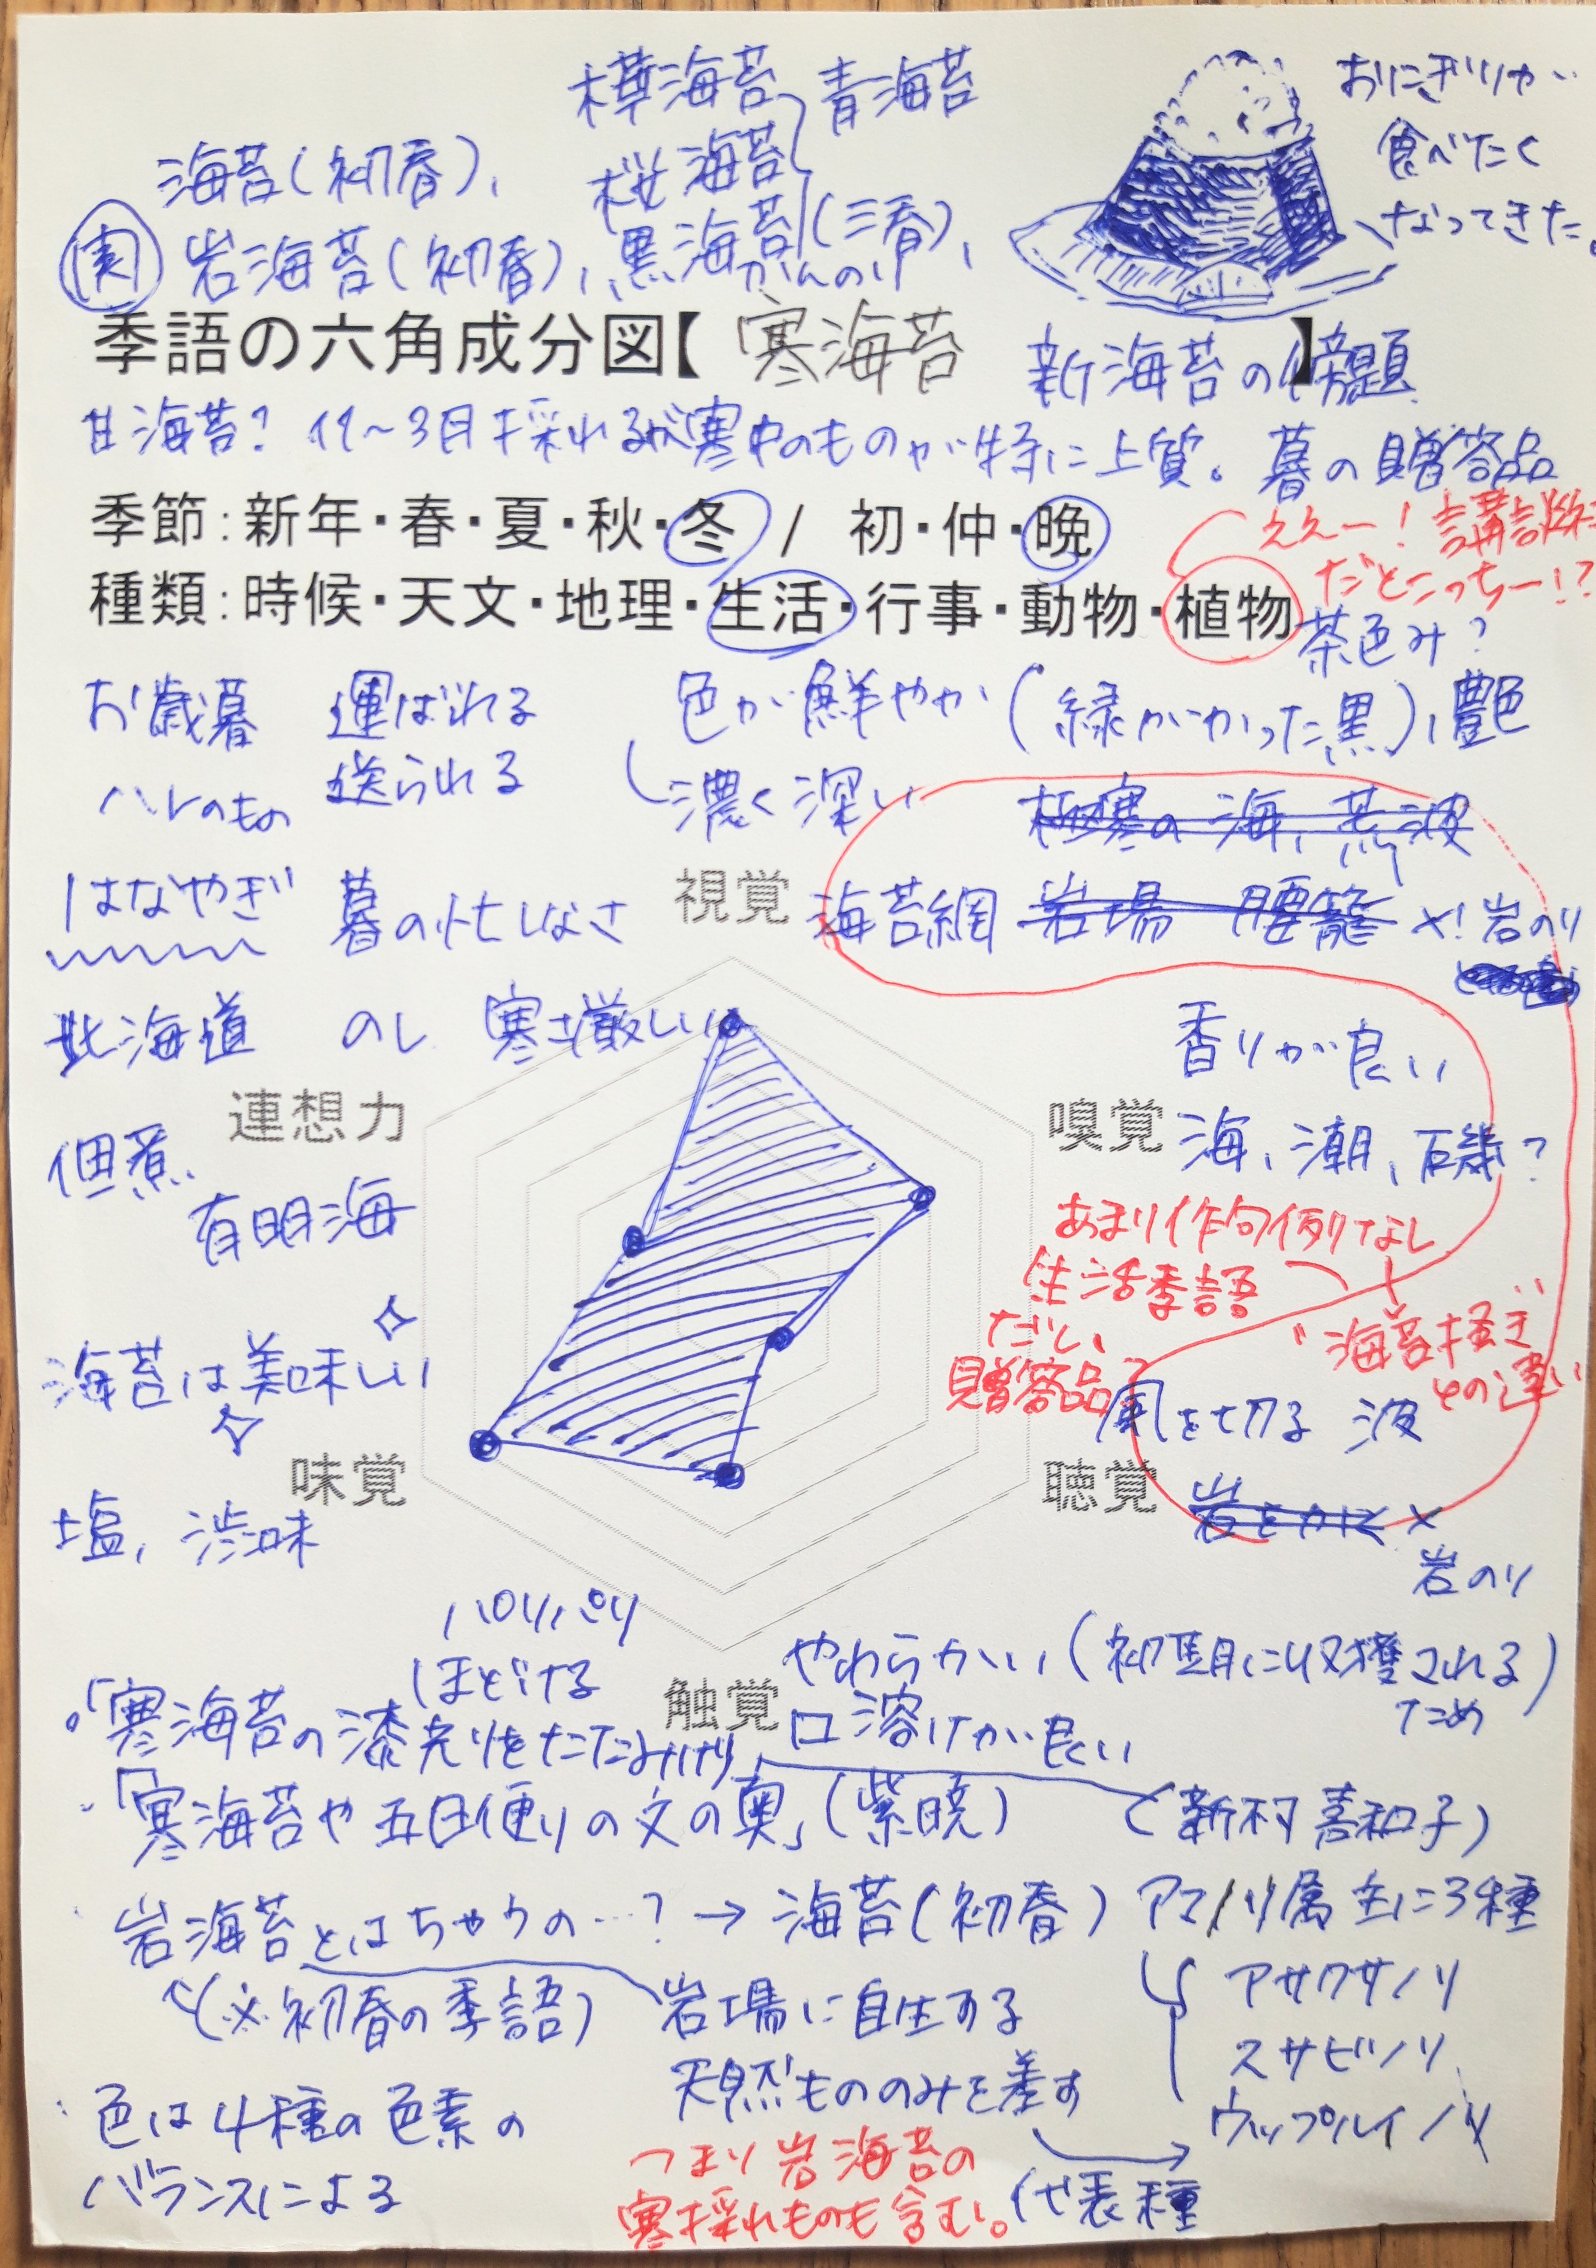 樺海苔 青海苔
おにぎりが
食べたく
なってきた。
海苔(初春)、
桜海苔
実 岩海苔(初春)、黒海苔(三春)、
かんのり
季語の六角成分図【 寒海苔 】
新海苔の傍題
甘海苔? 11〜3月採れるが寒中のものが特に上質。暮の贈答品
季節:新年・春・夏・秋・冬 / 初・仲・晩
ええー!講談社
だとこっちー!?
種類:時候・天文・地理・生活・行事・動物・植物
茶色み?
お歳暮 運ばれる 色が鮮やか(緑がかった黒)、艶
ハレのもの 送られる 濃く深い 極寒の海、荒波
はなやぎ 暮の忙しなさ 視覚 海苔網 岩場 腰籠 ×!岩のり
北海道 のし 寒さ厳しい
香りが良い
連想力 嗅覚 海、潮、磯?
佃煮
有明海
あまり作句例なし
生活季語
ただし、
贈答品?
"海苔掻き"
との違い
海苔は美味しい
風を切る 波
味覚 聴覚 岩をかく ×
岩のり
塩、渋味
パリパリ
ほどける 触覚 やわらかい(初期に収獲される)
ため
口溶けが良い
。「寒海苔の漆光りをたたみけり」
(新村喜和子)
・「寒海苔や五日便りの文の奥」(紫暁)
・岩海苔とはちゃうの…?→海苔(初春) アマノリ属主に3種
(※初春の季語) 岩場に自生する
天然もののみを差す
アサクサノリ
スサビノリ
ウップルイノリ
代表種
つまり岩海苔の
寒採れものも含む。
・色は4種の色素の
バランスによる